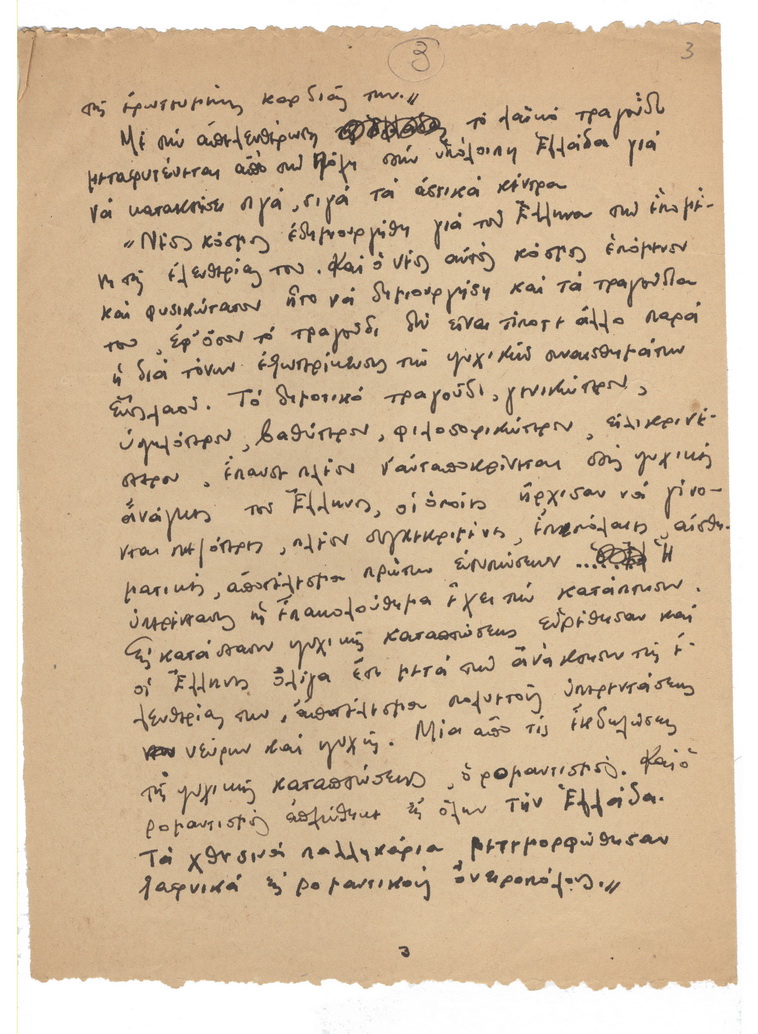 3 3
τῆς ἐρωτευμένης καρδιᾶς των.„
Μέ τήν ἀπελευθέρωση τό λαϊκό τραγούδι
μεταφυτεύεται ἀπό τήν Πόλη στήν ὑπόλοιπη Ἑλλάδα γιά
νά κατακτήσει σιγά, σιγά τά ἀστικά κέντρα
„Νέος κόσμος ἐδημιουργήθη γιά τόν Ἕλληνα τήν ἐπομέ-
νη τῆς ἐλευθερίας του. Καί ὁ νέος αὐτός κόσμος ἑπόμενον
καί φυσικώτατον ἦτο νά δημιουργήσῃ καί τά τραγούδια
του, ἐφ' ὅσον τό τραγούδι δέν εἶναι τίποτε ἄλλο παρά
ἡ διά τόνων ἐξωτερίκευσις τῶν ψυχικῶν συναισθημάτων
ἑνός λαοῦ. Τό δημοτικό τραγούδι, γενικώτερον,
ὑψηλότερον, βαθύτερον, φιλοσοφικώτερον, εἰλικρινέ-
στερον, ἔπαυσε πλέον ν' ἀνταποκρίνεται στίς ψυχικές
ἀνάγκες τοῦ Ἕλληνος, οἱ ὁποῖες ἤρχισαν νά γίνο-
νται πεζότερες, πλέον συγκεκριμένες, ἐπιπόλαιες, αἰσθη-
ματικές, ἀποτέλεσμα πρώτων ἐντυπώσεων ..... Ἡ
ὑπερέντασις ὡς ἐπακολούθημα ἔχει τήν κατάπτωσιν.
Εἰς κατάστασιν ψυχικῆς καταπτώσεως εὑρέθησαν καί
οἱ Ἕλληνες ὀλίγα ἔτη μετά τήν ἀνάκτησιν τῆς ἐ-
λευθερίας των, ἀποτέλεσμα πολυετοῦς ὑπερεντάσεως
νεύρων καί ψυχῆς. Μία ἀπό τίς ἐκδηλώσεις
τῆς ψυχικῆς καταπτώσεως, ὁ ρομαντισμός. Καί ὁ
ρομαντισμός ἁπλώθηκε εἰς ὅλην τήν Ἑλλάδα.
Τά χθεσινά παλληκάρια μετεμορφώθησαν
ξαφνικά εἰς ρομαντικούς ὀνειροπόλους.„
3